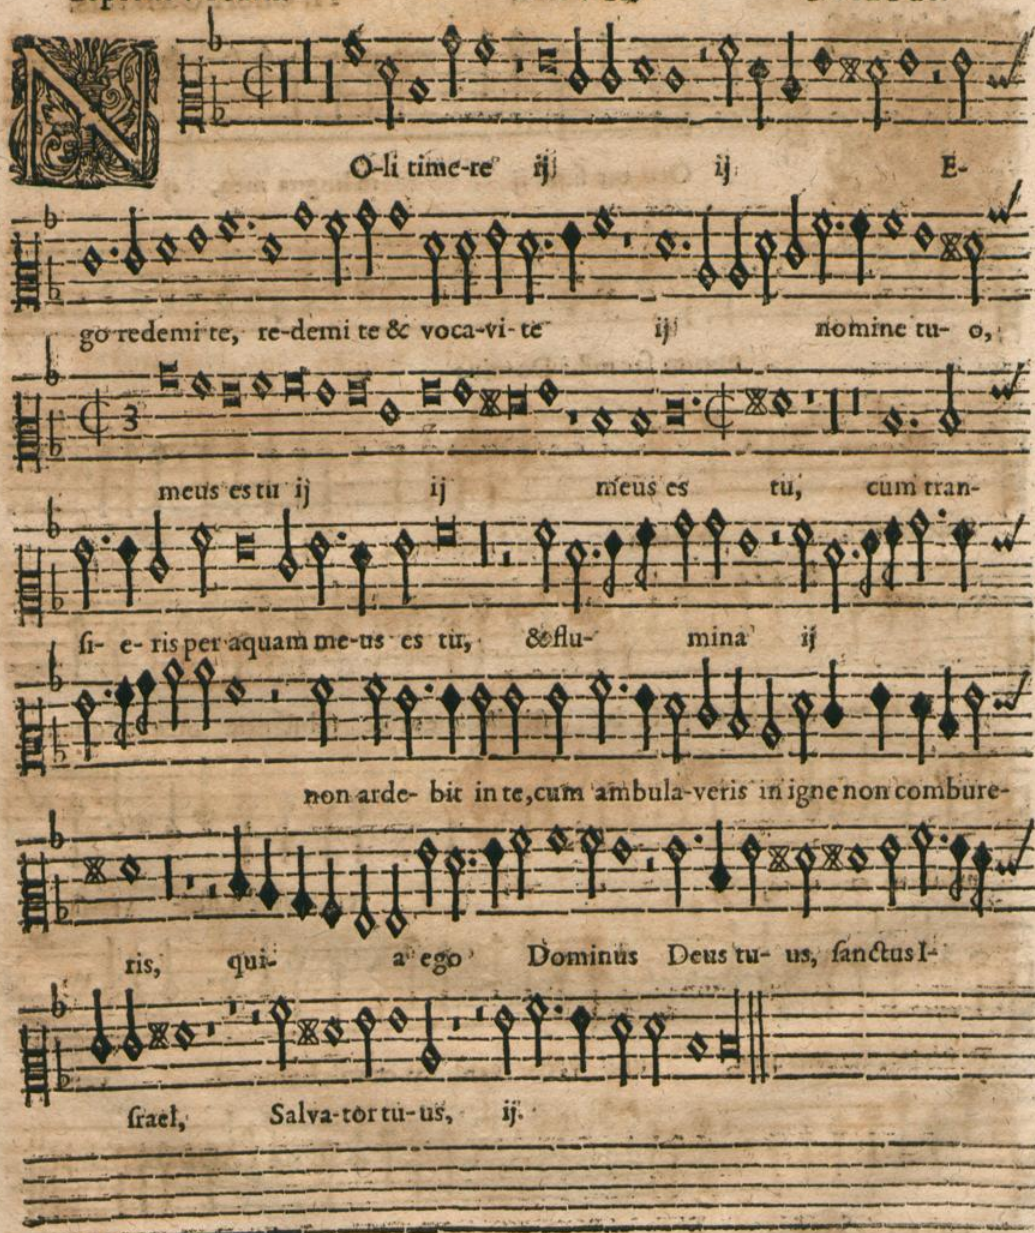 NO-li time-re ij ij E-
go redemi te, re-demi te & voca-vi-te ij nomine tu- o,
3
meus es tu ij ij meus es tu, cum tran-
si- e- ris per aquam me-us es tu, & flu- mina ij
non arde- bit in te, cum ambula-veris in igne non combure-
ris, qui- a ego Dominus Deus tu- us, sanctus I-
srael, Salva-tor tu-us, ij.